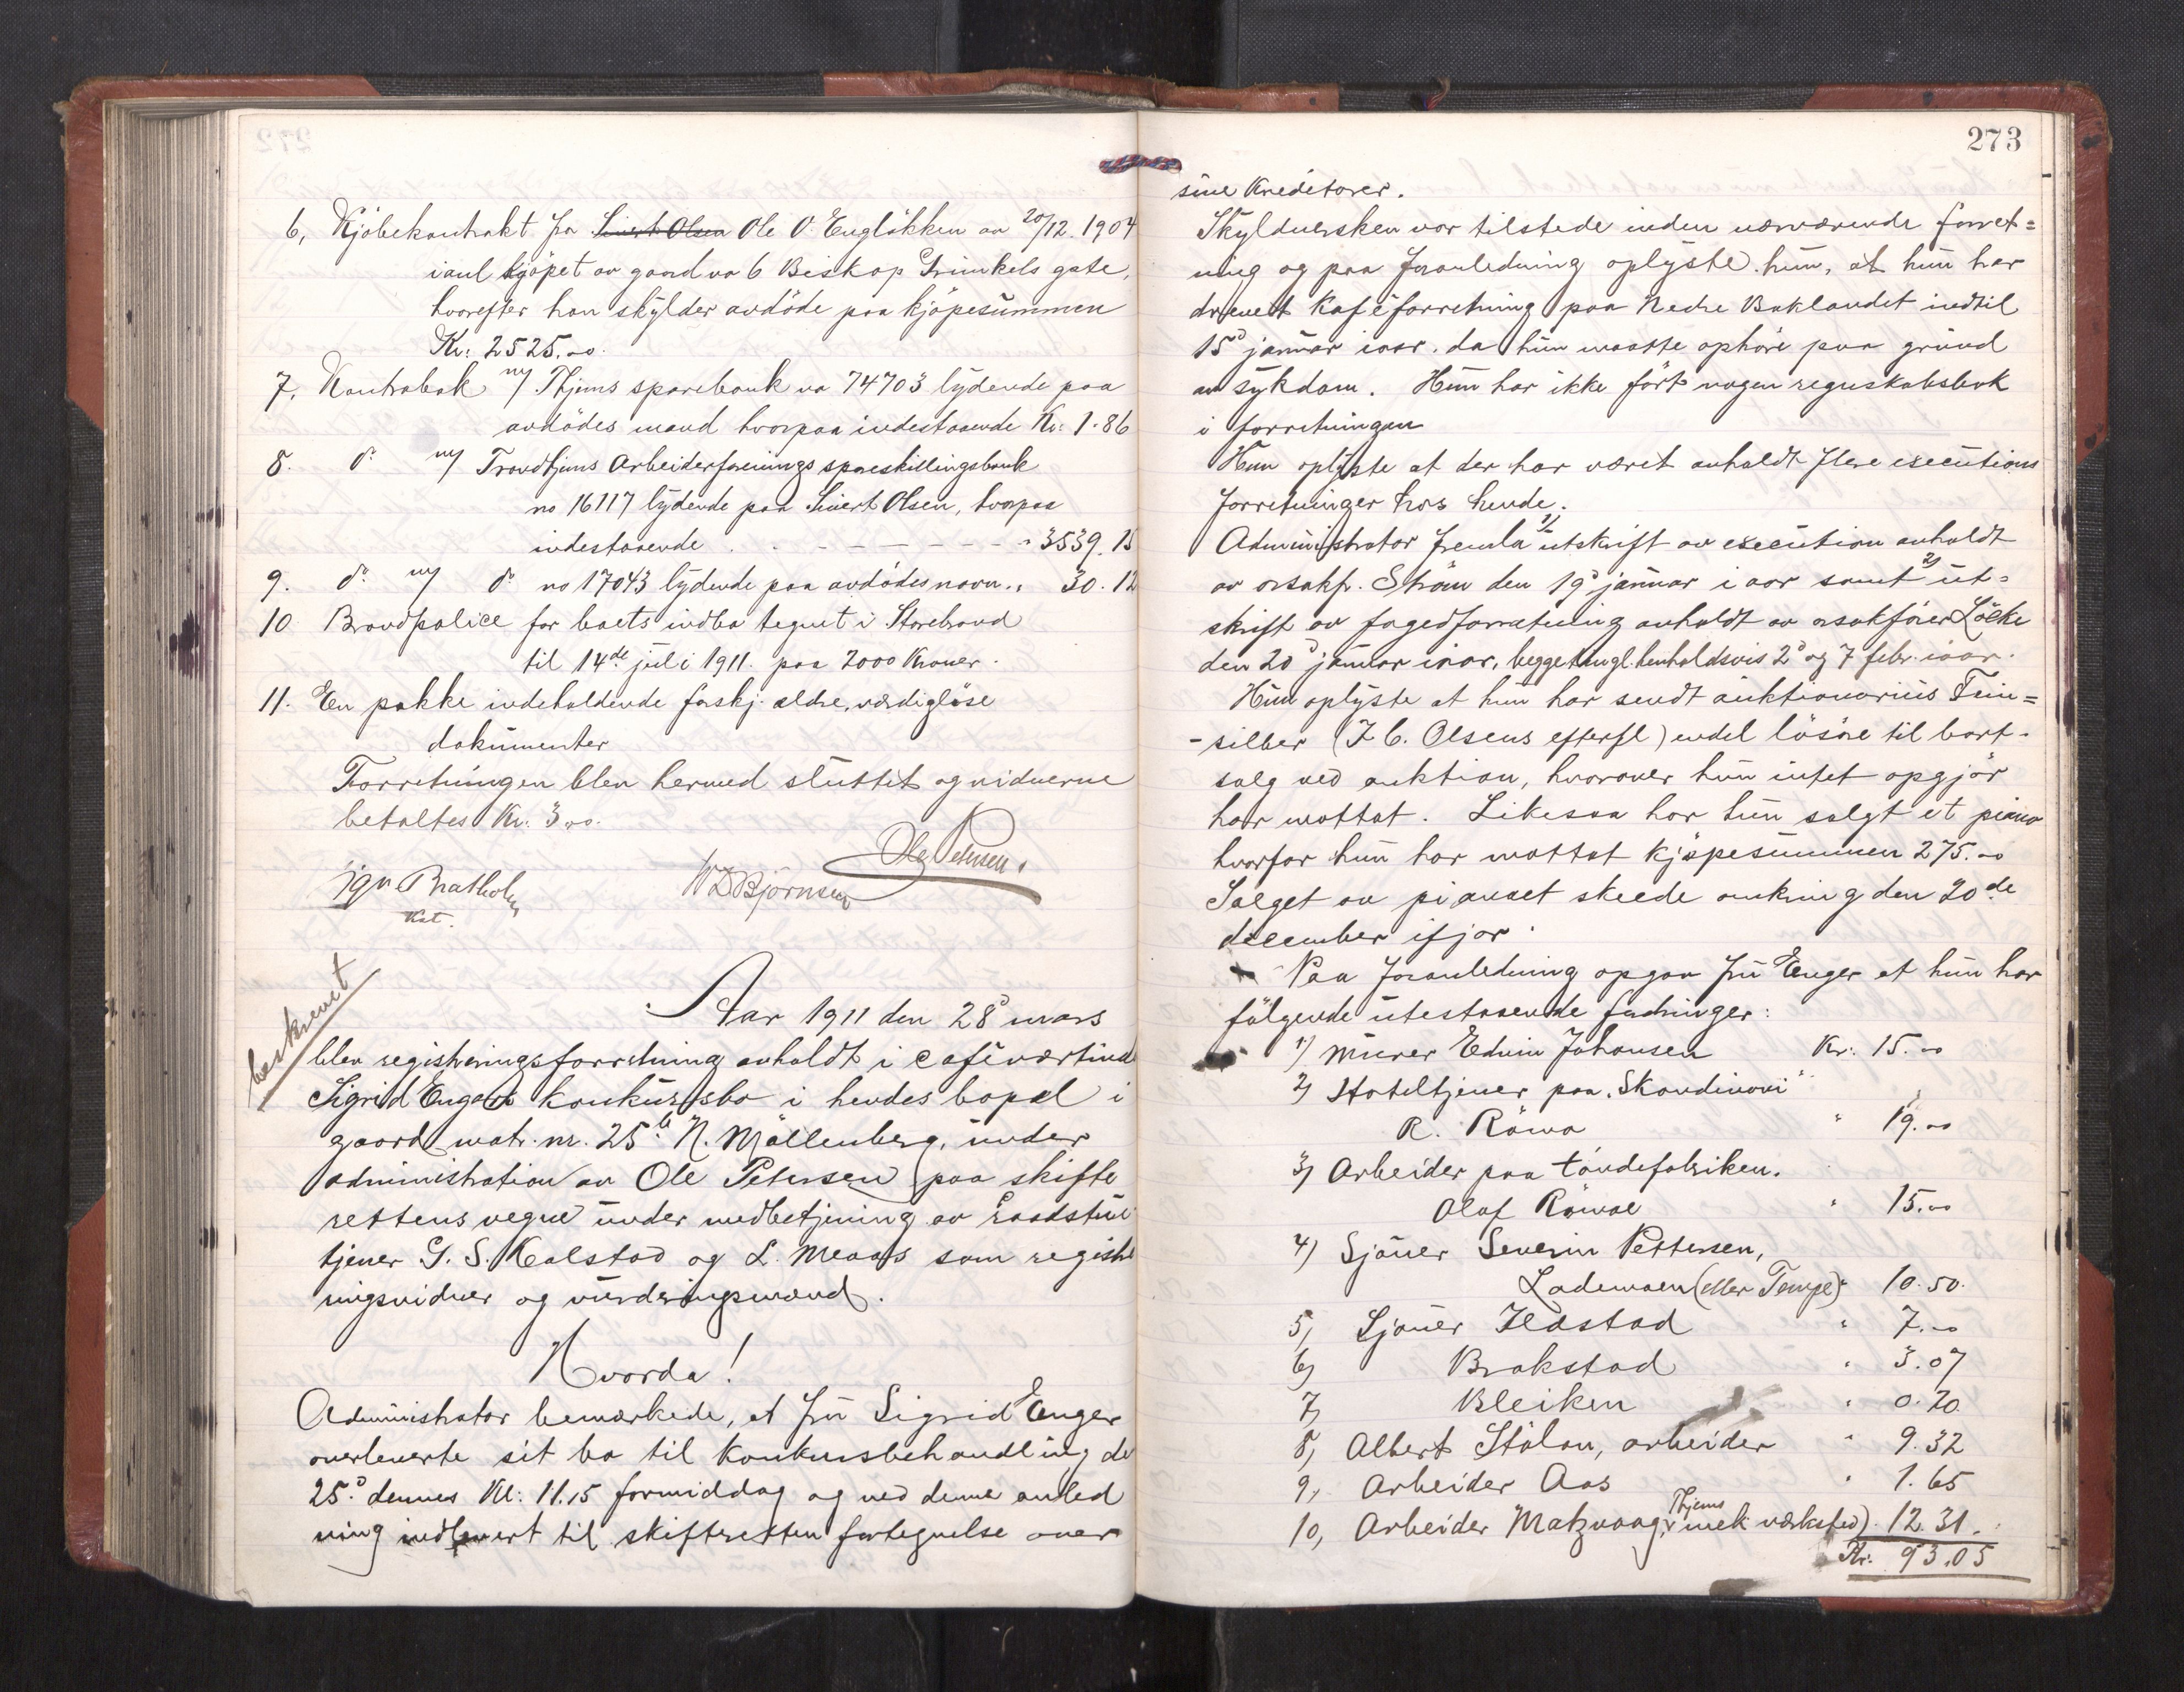 6, Kjöbekontrakt fra Sivert Olsen Ole O. Englökken av 20/12. 1904
ianl kjöpet av gaard no 6 Biskop Grimkels gate,
hvorefter han skylder avdöde paa kjöpesummen
Kr: 2525.00.
7, Kontrabok m/ Thjems sparebank no 74703 lydende paa
avdödes mand hvorpaa indestaaende Kr: 1.86
8. do m/ Trondhjems Arbeiderforenings spareskillingsbank
no 16117 lydende paa Sivert Olsen, hvorpaa
indestaaende . . - - - - - - " 3539.15
9. do m/ do no 17043 lydende paa avdödes navn " 30.12
10 Brandpolice for boets indbo tegnet i Storebrand
til 14de juli 1911. paa 2000 Kroner.
11. En pakke indeholdende forskj. ældre, værdiglöse
dokumenter
Forretningen blev hermed sluttet og vidnerne
betaltes Kr. 3.00.
Ole Petersen.
Jgn Bratholm WD Björnsen
Kst.
beskrevet
Aar 1911 den 28de mars
blev registreringsforretning avholdt i caféværtind
Sigrid Engers konkursbo i hendes bopæl i
gaard matr. nr. 25b N. Möllenberg, under
administration av Ole Petersen paa skifte
rettens vegne under medbetjening av raadstue
tjener G. S. Kalstad og L. Meaas som registre
ringsvidner og vurderingsmænd.
Hvorda!
Administrator bemærkede, at fru Sigrid Enger
overleverte sit bo til konkursbehandling de
25de dennes Kl: 11.15 formiddag og ved denne anled
ning indlevert til skifteretten fortegnelse over
273
sine Kreditorer.
Skyldnersken var tilstede inden nærværende forret=
ning og paa foranledning oplyste hun, at hun har
drevet Kaféforretning paa Nedre Baklandet indtil
15de januar iaar. da hun maatte ophöre paa grund
av sykdom. Hun har ikke fört nogen regnskabsbok
i forretningen
Hun oplyste at der har været avholdt flere executions
forretninger hos hende.
Administrator fremla 1) utskrift av execution avholdt
av orsakf. Ström den 19de januar i aar samt 2) ut=
skrift av fogedforretning avholdt av orsakförer Löcke
den 20de januar iaar, begge tingl. henholdsvis 2de og 7 febr. iaar.
Hun oplyste at hun har sendt auktionarius Fein=
-silber (J C. Olsens efterfl) endel lösöre til bort-
salg ved auktion, hvorover hun intet opgjör
har mottat. Likesaa har hun solgt et piano
hvorfor hun har mottat kjöpesummen 275.00
Salget av pianoet skeede omkring den 20de
december ifjor.
Paa foranledning opgav fru Enger at hun har
fölgende utestaaende fordringer:
1) Murer Edvin Johansen Kr: 15.00
2) Hoteltjener paa "Skandinavi"
R. Råwa " 19.00
3) Arbeider paa töndefabriken.
Olaf Råwa " 15.00
4) Sjauer Severin Pettersen,
Lademoen (eller Tempe) " 10.50.
5, Sjauer Ildstad " 7.00
6, Brakstad " 3.07
7, Bleiken " 0.20
8, Albert Stölan, arbeider " 9.32
9, Arbeider Aas " 1.65
10, Arbeider Matzvaag, (Thjems mek værksted) 12.31.
Kr: 93.05